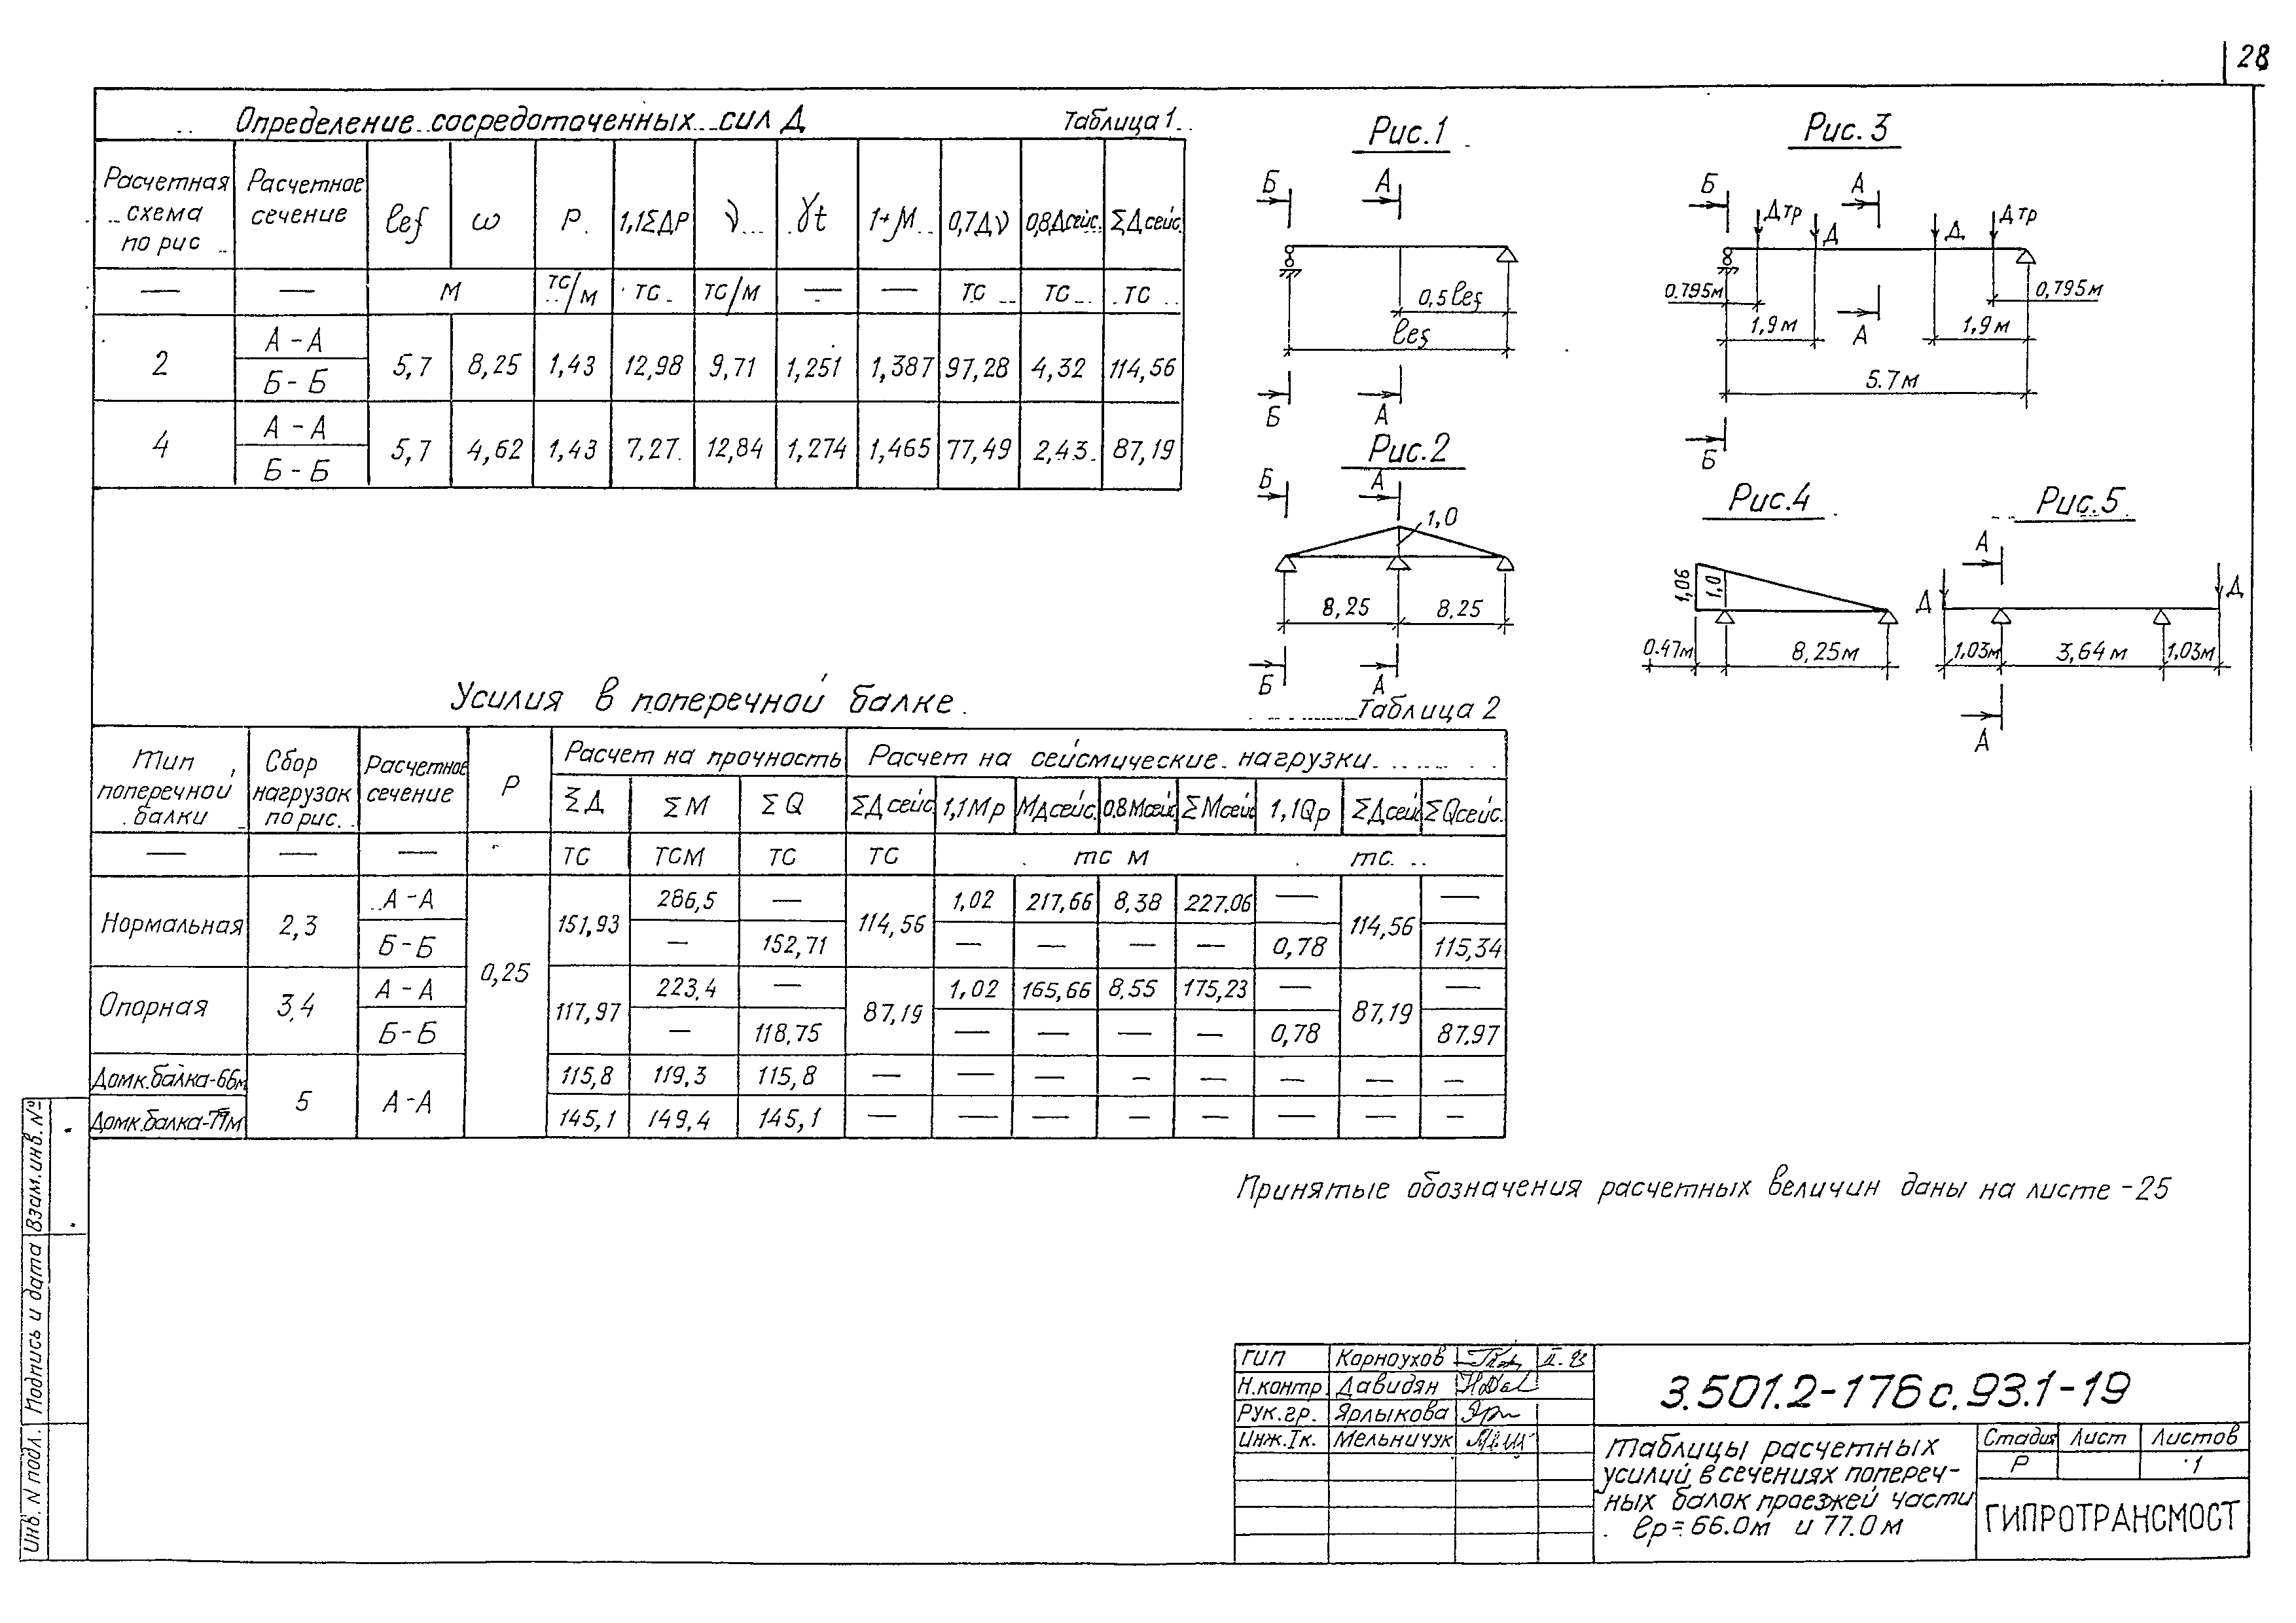 28
Определение сосредоточенных сил Д
Таблица 1
Расчетная схема по рис | Расчетное сечение | lef | ω | P | 1,1ΣДP | ν | γt | 1+М | 0,7Дν | 0,8Дсейс. | ΣДсейс.
— | — | м | тс/м | тс | тс/м | — | — | тс | тс | тс
2 | А-А | 5,7 | 8,25 | 1,43 | 12,98 | 9,71 | 1,251 | 1,387 | 97,28 | 4,32 | 114,56
Б-Б
4 | А-А | 5,7 | 4,62 | 1,43 | 7,27 | 12,84 | 1,274 | 1,465 | 77,49 | 2,43 | 87,19
Б-Б
Рис.1
Б А
0,5lef
lef
Б А
Рис.2
Б А
1,0
8,25 8,25
Б А
Рис.3
Б А
Дтр Д Д Дтр
0.795м 0,795м
1,9м А 1,9м
5.7м
Б
Рис.4
1,06 1,0
0.47м 8,25м
Рис.5
А
Д Д
1,03м 3,64м 1,03м
А
Усилия в поперечной балке.
Таблица 2
Тип поперечной балки | Сбор нагрузок по рис. | Расчетное сечение | P | Расчет на прочность | Расчет на сейсмические нагрузки
ΣД | ΣМ | ΣQ | ΣДсейс. | 1,1Мр | МДсейс. | 0.8Мсейс. | ΣМсейс | 1,1Qр | ΣДсейс | ΣQсейс.
— | — | — | тс | тсм | тс | тс | тс м | тс.
Нормальная | 2,3 | А-А | 0,25 | 151,93 | 286,5 | — | 114,56 | 1,02 | 217,66 | 8,38 | 227.06 | — | 114,56 | —
Б-Б | — | 152,71 | — | — | — | — | 0,78 | 115,34
Опорная | 3,4 | А-А | 117,97 | 223,4 | — | 87,19 | 1,02 | 165,66 | 8.55 | 175,23 | — | 87,19 | —
Б-Б | — | 118,75 | — | — | — | — | 0,78 | 87.97
Домк.балка-66м | 5 | А-А | 115,8 | 119,3 | 115,8 | — | — | — | — | — | — | — | —
Домк.балка-77м | 145,1 | 149,4 | 145,1 | — | — | — | — | — | — | — | —
Принятые обозначения расчетных величин даны на листе -25
Инв. N подл. Подпись и дата Взам.инв.№
ГИП Корноухов II.93
Н.контр. Давидян
Рук.гр. Ярлыкова
Инж.Iк. Мельничук
3.501.2-176с.93.1-19
Таблицы расчетных
усилий в сечениях попереч-
ных балок проезжей части
lр=66.0м и 77.0м
Стадия Лист Листов
Р 1
ГИПРОТРАНСМОСТ